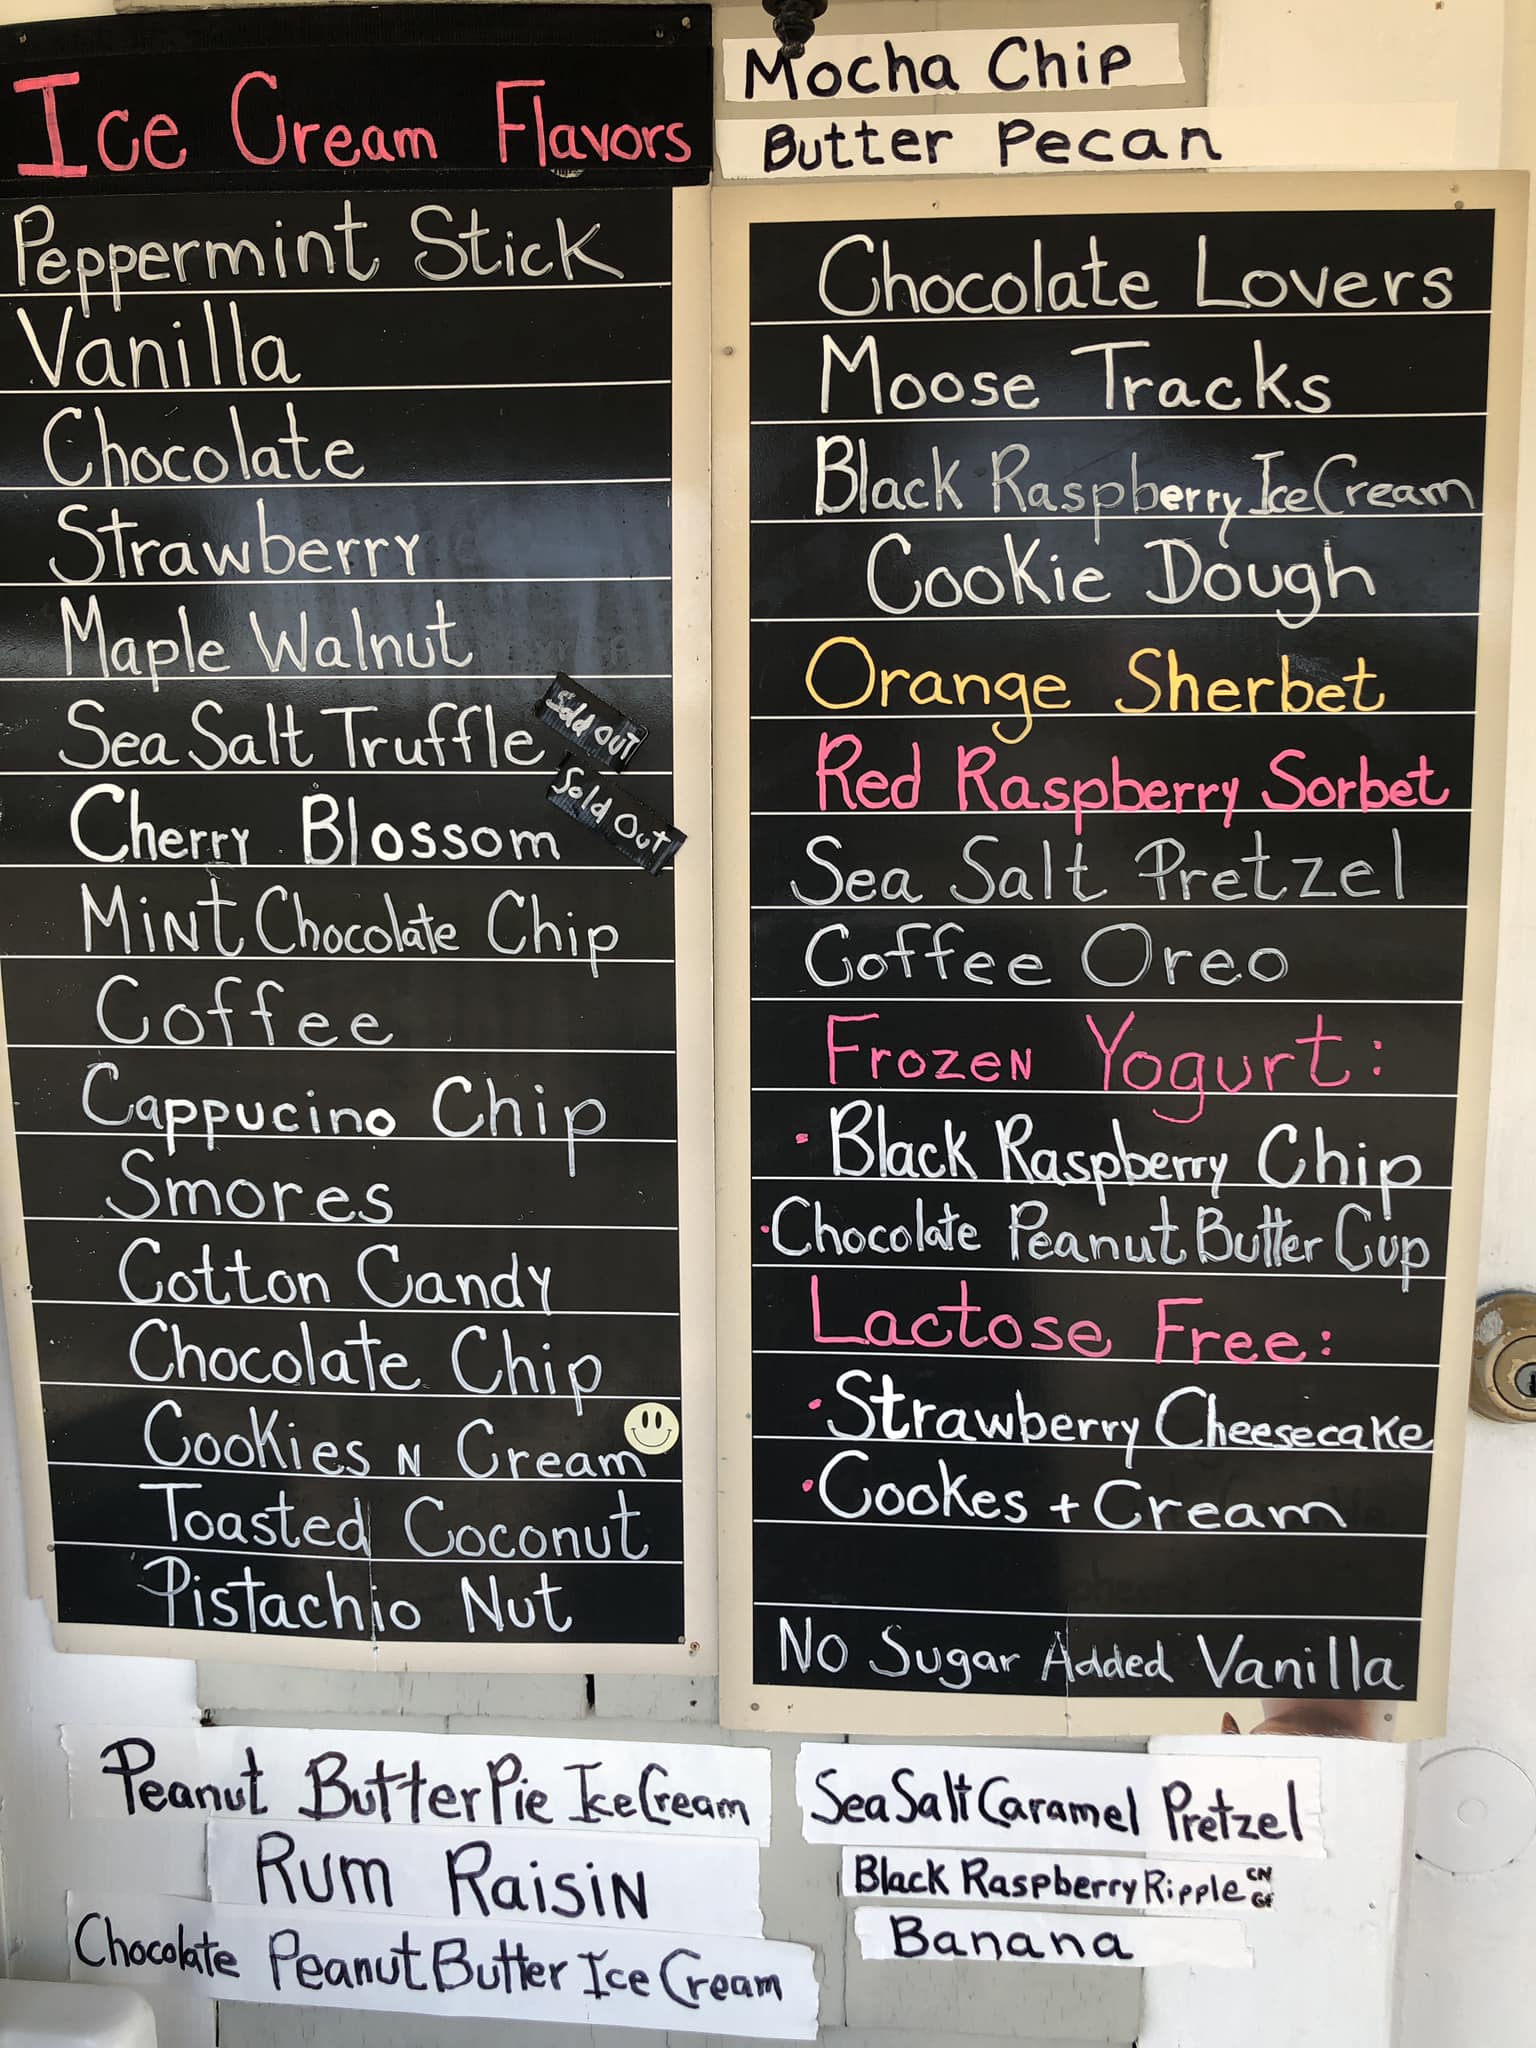 Ice Cream Flavors
Peppermint Stick
Vanilla
Chocolate
Strawberry
Maple Walnut
Sea Salt Truffle
Sold Out
Cherry Blossom
Sold Out
Mint Chocolate Chip
Coffee
Cappucino Chip
Smores
Cotton Candy
Chocolate Chip
Cookies N Cream
Toasted Coconut
Pistachio Nut
Peanut Butter Pie Ice Cream
Rum Raisin
Chocolate Peanut Butter Ice Cream
Mocha Chip
Butter Pecan
Chocolate Lovers
Moose Tracks
Black Raspberry Ice Cream
Cookie Dough
Orange Sherbet
Red Raspberry Sorbet
Sea Salt Pretzel
Coffee Oreo
Frozen Yogurt:
• Black Raspberry Chip
• Chocolate Peanut Butter Cup
Lactose Free:
• Strawberry Cheesecake
• Cookes + Cream
No Sugar Added Vanilla
Sea Salt Caramel Pretzel
Black Raspberry Ripple
Banana